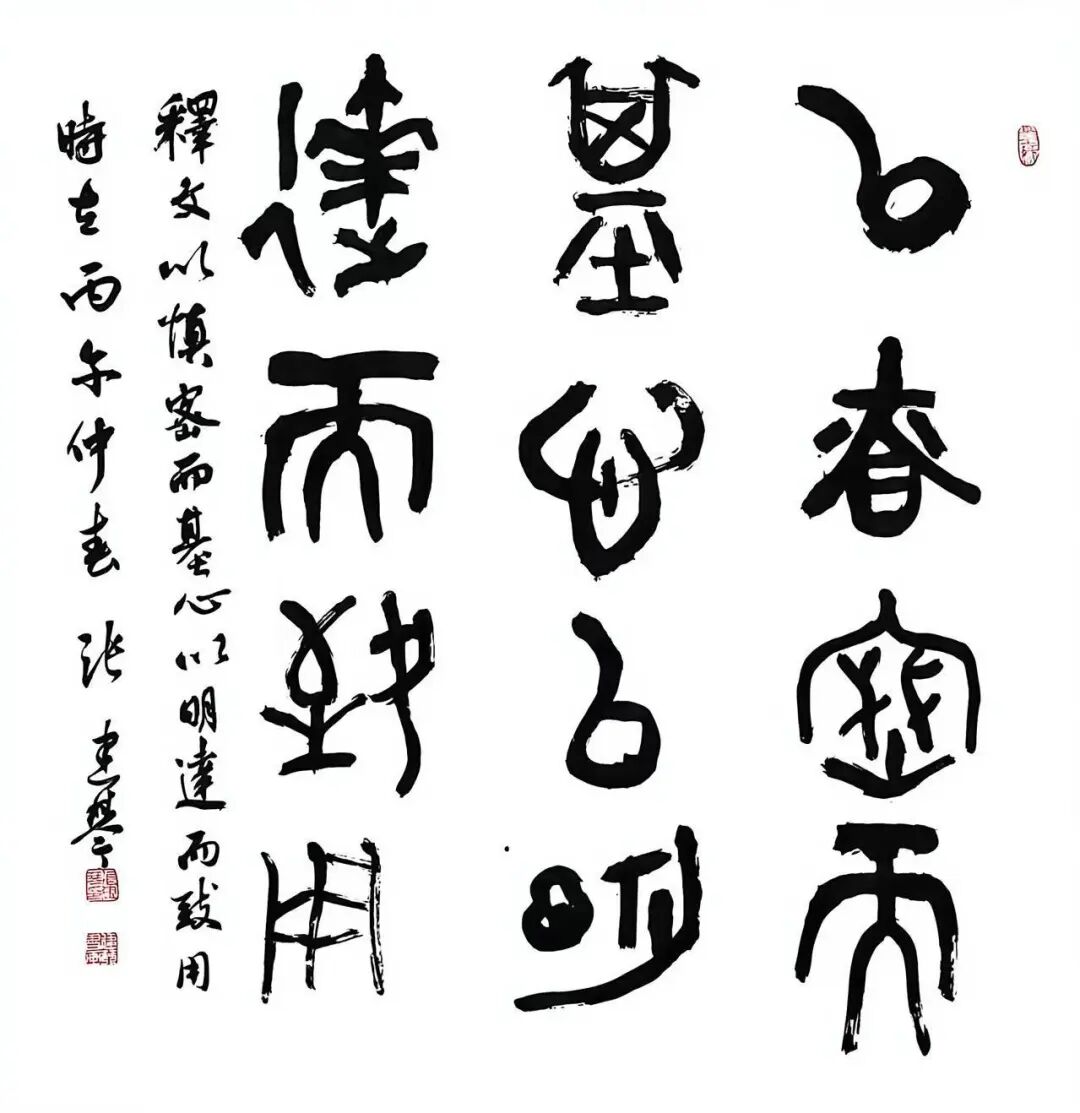 以慎密而
基心以明
達而致用
釋文以慎密而基心以明達而致用
時在丙午仲春 张建琴